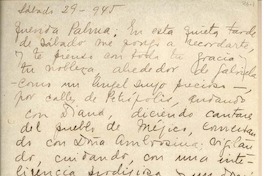 Sábado 29-945
Querida Palma: En esta quieta tarde
de Sábado me pongo a recordarte,
y te pienso con toda tu gracia y
tu nobleza alrededor de Gabriela
-como un Angel suyo precioso-,
por calles de Petrópolis, andando
con Diana, diciendo cantares
del pueblo de Méjico, conversan
do con Doña Ambrosina; vigilan
do, cuidando, con una inte
ligencia prodigiosa